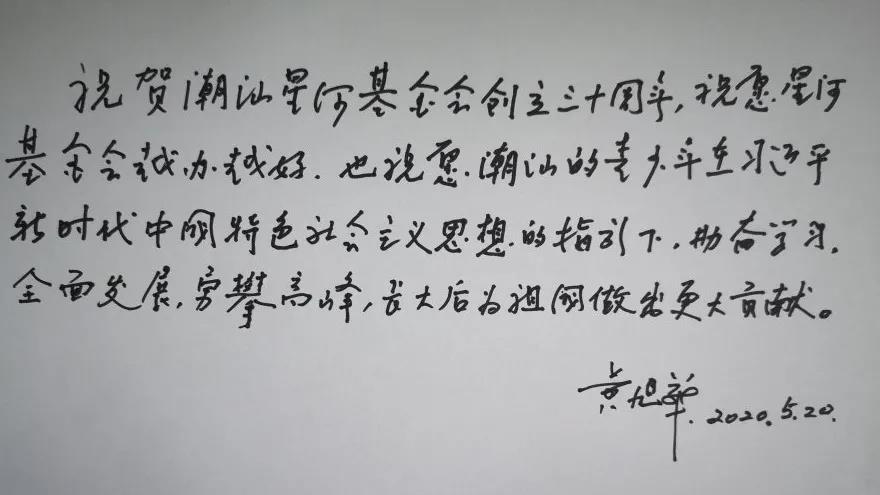 祝贺潮汕星河基金会创立三十周年,祝愿星河
基金会越办越好.也祝愿潮汕的青少年在习近平
新时代中国特色社会主义思想的指引下,勤奋学习,
全面发展,勇攀高峰,长大后为祖国做出更大贡献。
黄旭华 2020.5.20.